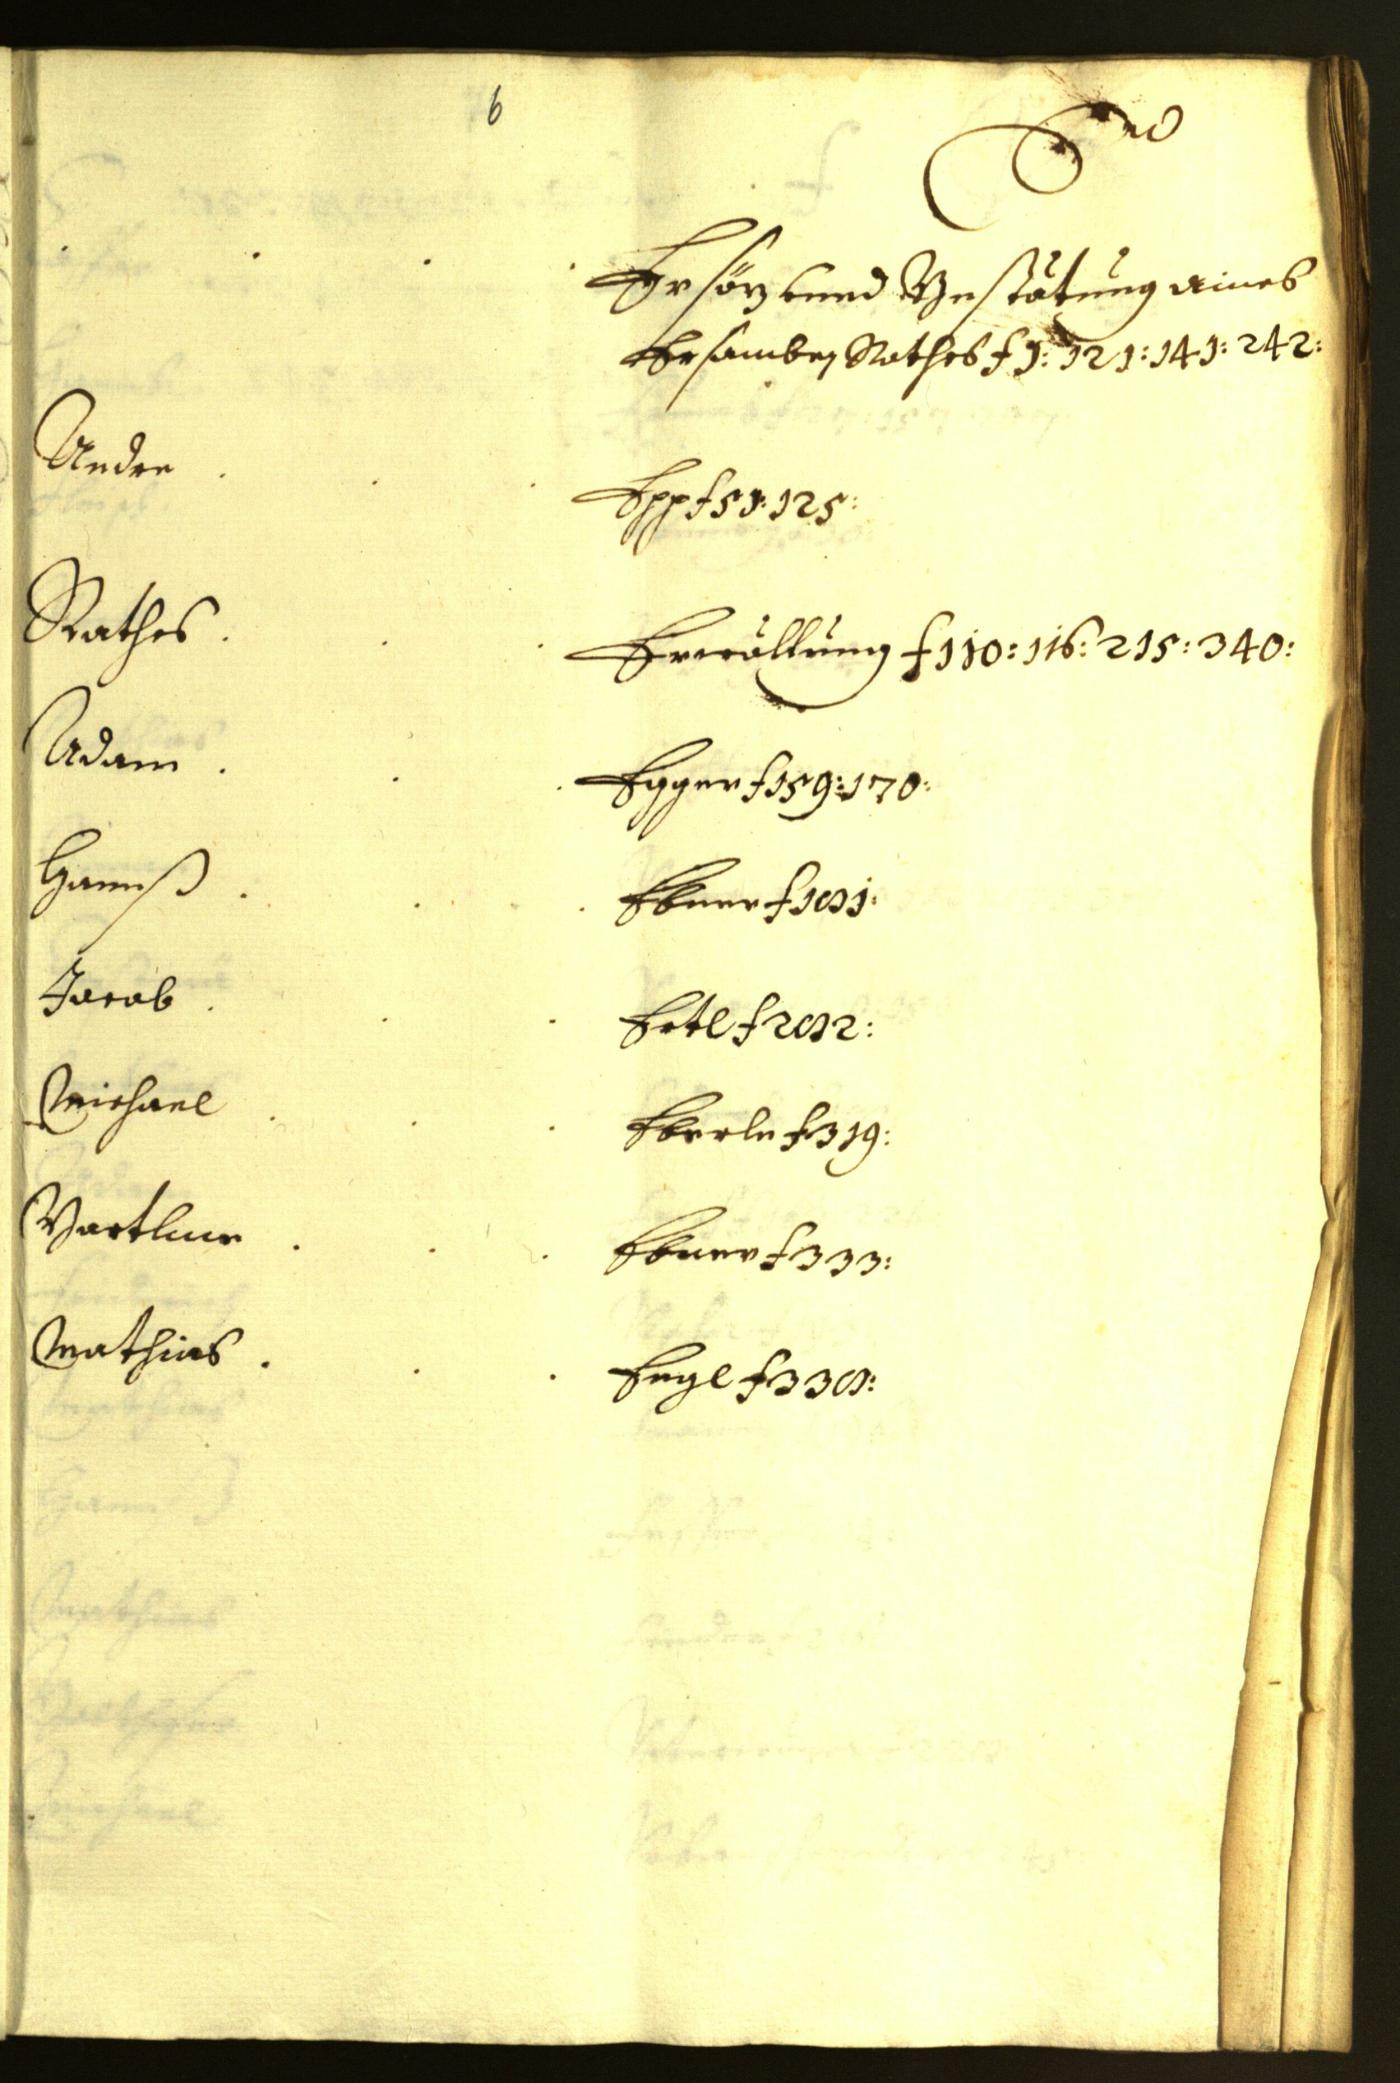 6
Ersöz unnd Bestätung aines
Ersamben Rathes f 1: 121: 141: 242:
Andre . . . Epp f 51: 125:
Rathes . . . Erwöllung f 110: 116: 215: 340:
Adam . . . Egger f 159: 170:
Hannß . . . Ebner f 181:
Jacob . . . Ertl f 282:
Michael . . . Eberle f 319:
Bartlme . . . Ebner f 333:
Mathias . . . Engl f 338: